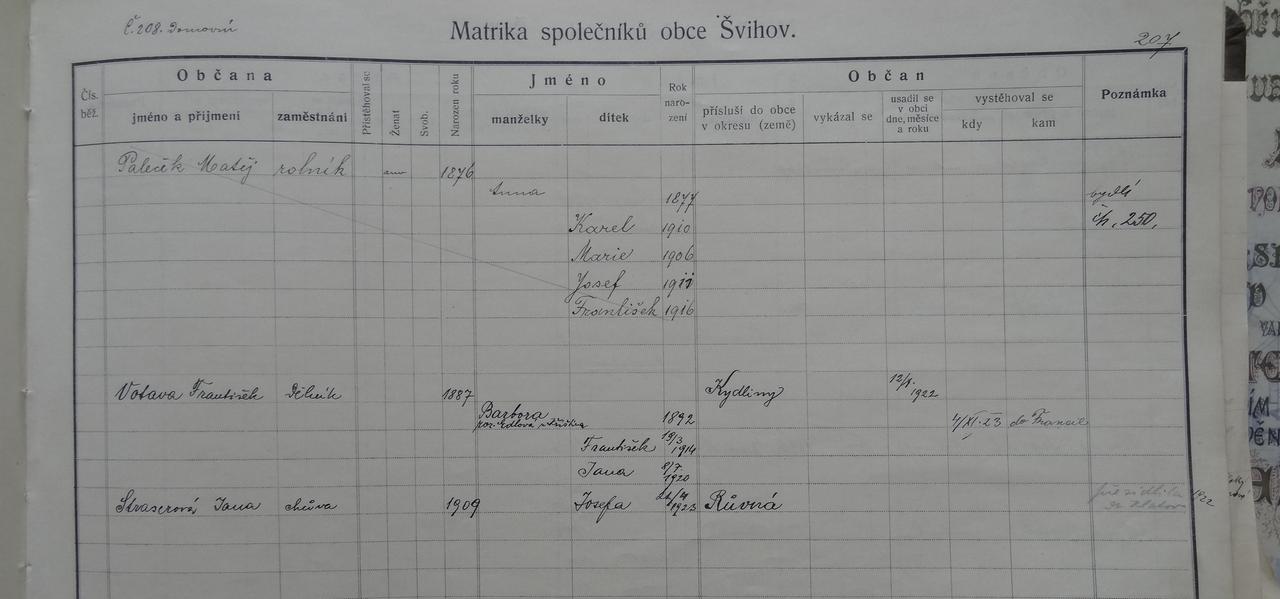 Č. 208. Domovní
Matrika společníků obce Švihov.
207
Čís. běž.
Občana
jméno a příjmení
zaměstnání
Přistěhoval se
Ženat
Svob.
Narozen roku
Jméno
manželky
dítek
Rok naro- zení
Občan
přísluší do obce v okresu (země)
vykázal se
usadil se v obci dne, měsíce a roku
vystěhoval se
kdy
kam
Poznámka
Paleček Matěj rolník 1876
Anna 1877 bydlí
Karel 1910 čp. 250.
Marie 1906
Josef 1911
František 1916
Votava František dělník 1887 Kydliny 12/I. 1922
Barbora 1892 4/XI. 23 do Francie
František 19/3 1914
Jana 8/7 1920
Straserová Jana chůva 1909 Josefa 1923 Růvná 1922